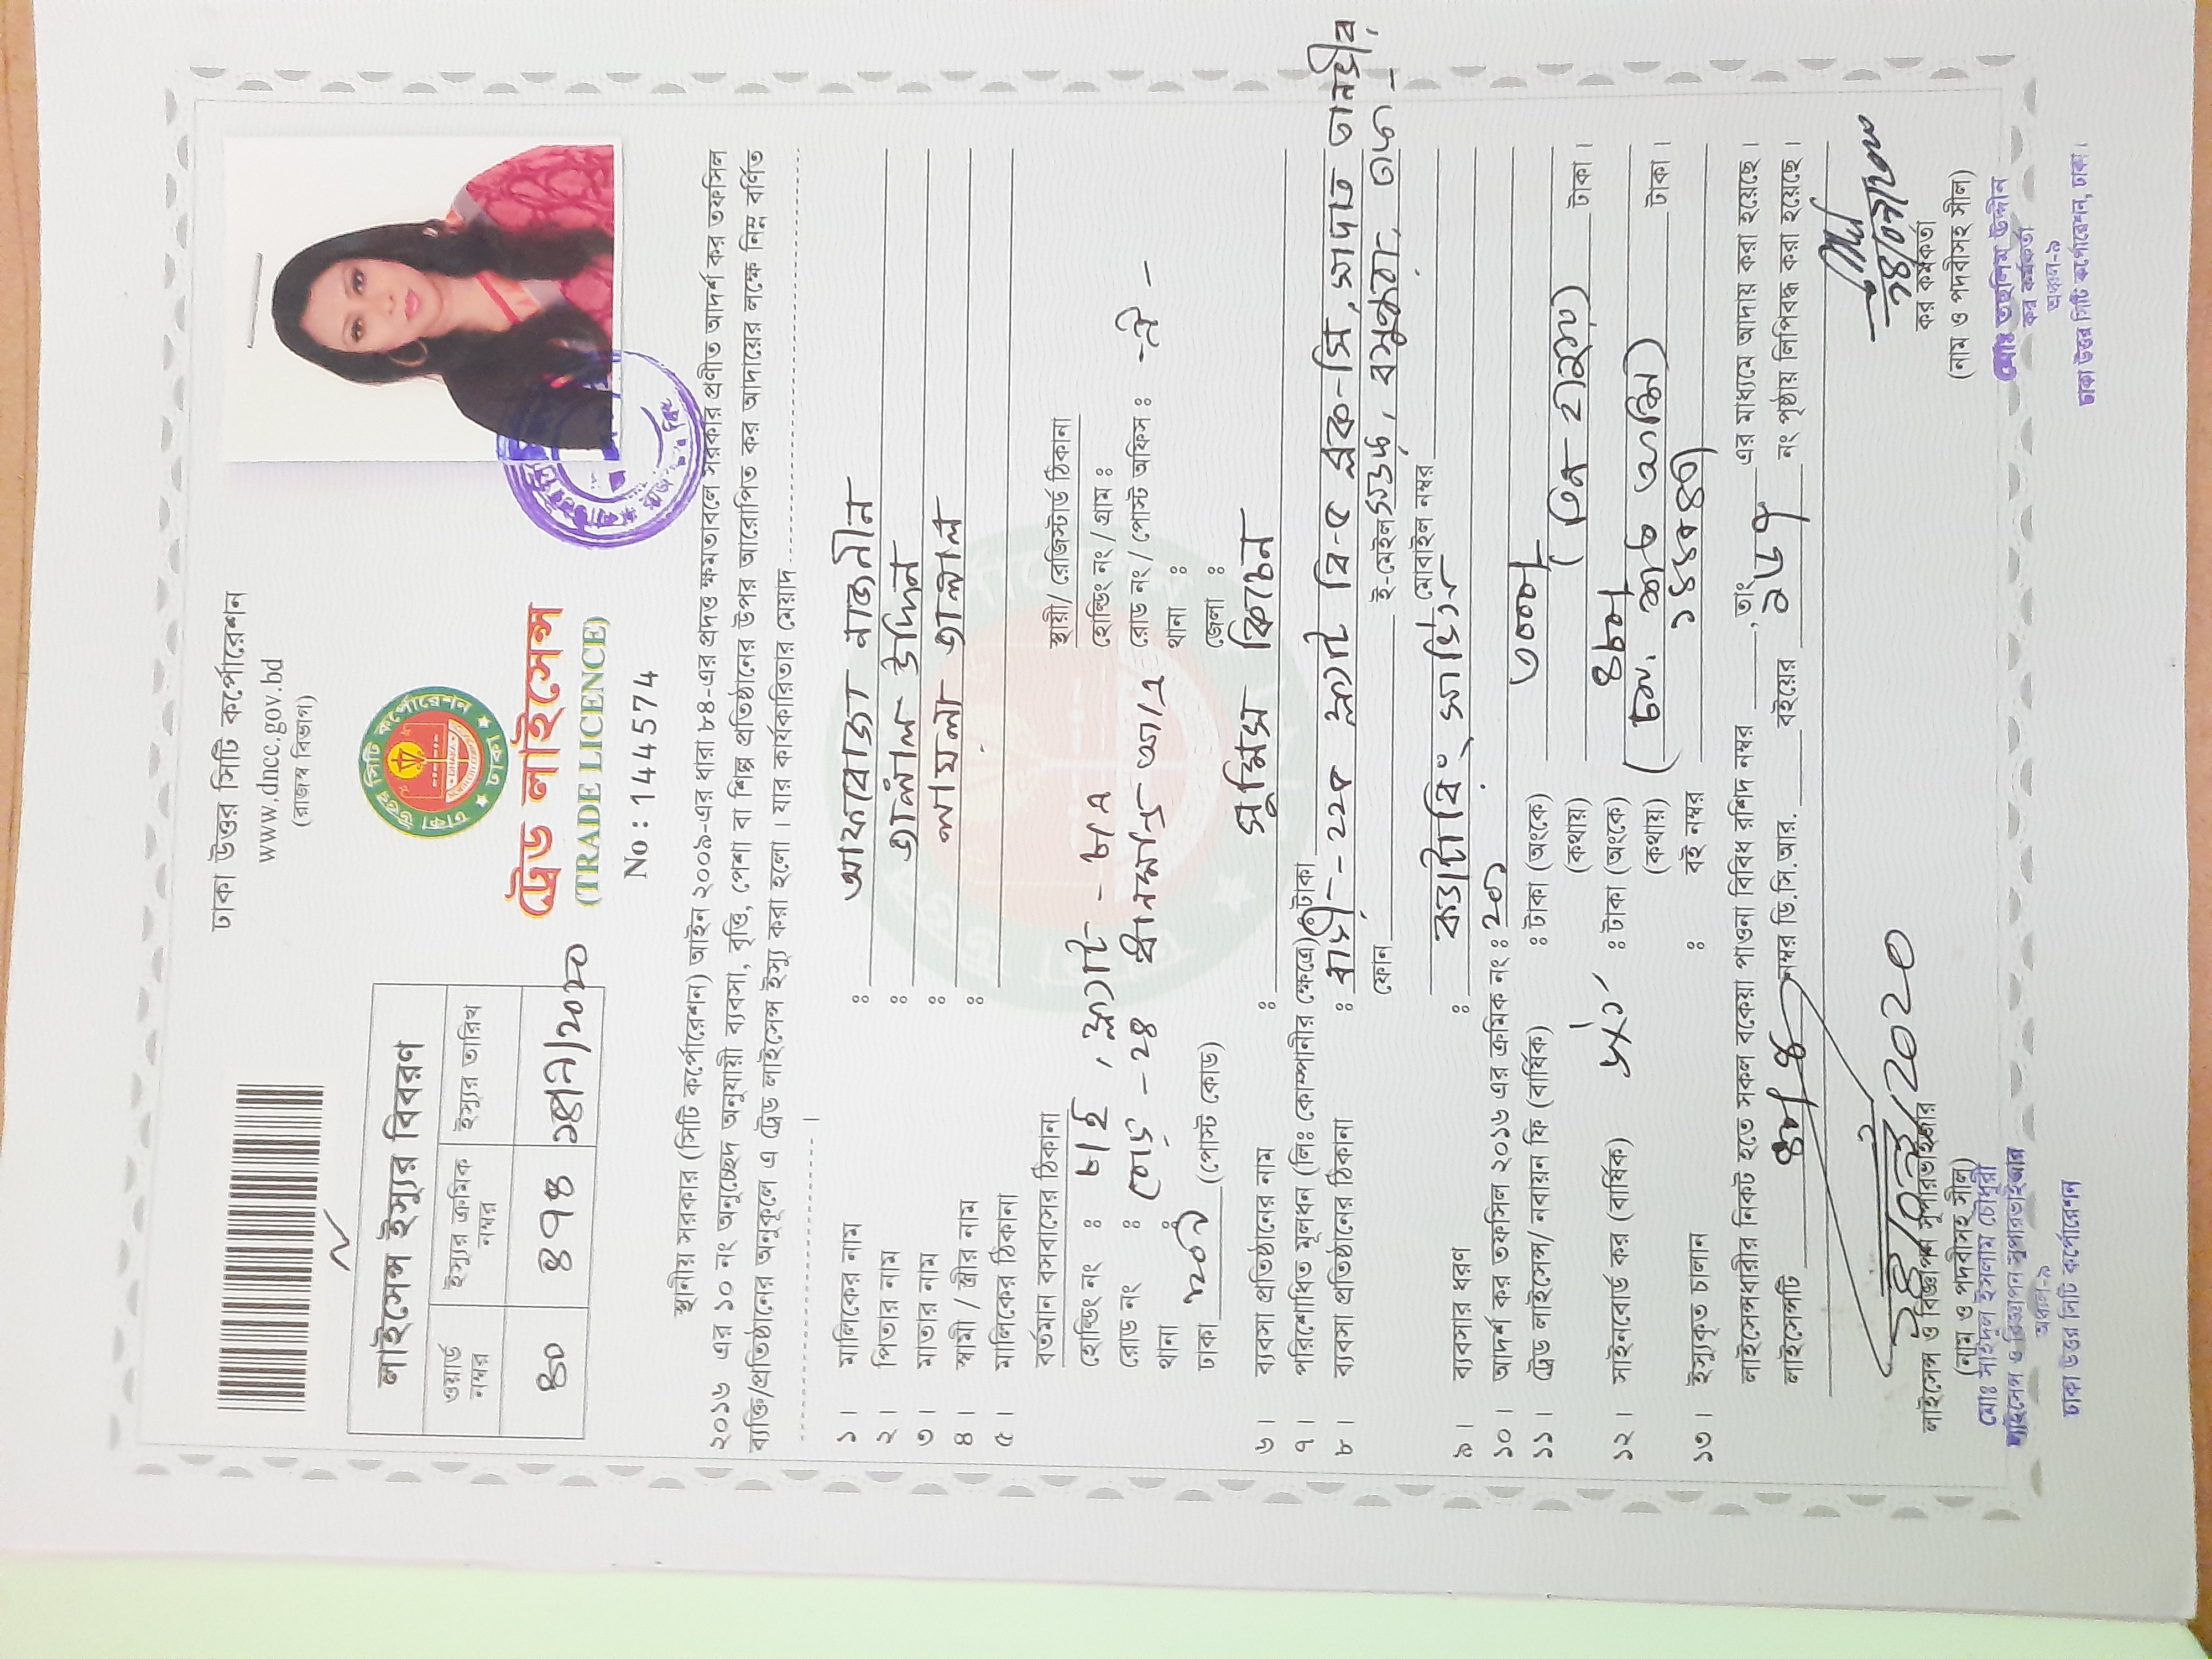 ঢাকা উত্তর সিটি কর্পোরেশন
www.dncc.gov.bd
(রাজস্ব বিভাগ)
লাইসেন্স ইস্যুর বিবরণ
ওয়ার্ড নম্বর
ইস্যুর ক্রমিক নম্বর
ইস্যুর তারিখ
৪০ ৪৭৪ ১৪/৭/২০২০
ঢাকা উত্তর সিটি কর্পোরেশন
DHAKA
ঢাকা
ট্রেড লাইসেন্স
(TRADE LICENCE)
No : 144574
স্থানীয় সরকার (সিটি কর্পোরেশন) আইন ২০০৯-এর ধারা ৮৪-এর প্রদত্ত ক্ষমতাবলে সরকার প্রণীত আদর্শ কর তফসিল
২০১৬ এর ১০ নং অনুচ্ছেদ অনুযায়ী ব্যবসা, বৃত্তি, পেশা বা শিল্প প্রতিষ্ঠানের উপর আরোপিত কর আদায়ের লক্ষে নিম্ন বর্ণিত
ব্যক্তি/প্রতিষ্ঠানের অনুকূলে এ ট্রেড লাইসেন্স ইস্যু করা হলো। যার কার্যকারিতার মেয়াদ
।
১। মালিকের নাম : আফরোজা নাজনীন
২। পিতার নাম : জালাল উদ্দিন
৩। মাতার নাম : লায়লা জালাল
৪। স্বামী / স্ত্রীর নাম :
৫। মালিকের ঠিকানা
বর্তমান বসবাসের ঠিকানা
স্থায়ী/ রেজিস্টার্ড ঠিকানা
হোল্ডিং নং : ৮/ই, ফ্ল্যাট - ৮/এ
হোল্ডিং নং / গ্রাম :
রোড নং : রোড -১৪ ধানমন্ডি আ/এ
রোড নং / পোস্ট অফিস : -ঐ -
থানা :
থানা :
ঢাকা (পোস্ট কোড)
জেলা :
৬। ব্যবসা প্রতিষ্ঠানের নাম : সুমিস কিচেন
৭। পরিশোধিত মূলধন (লিঃ কোম্পানীর ক্ষেত্রে) : টাকা
৮। ব্যবসা প্রতিষ্ঠানের ঠিকানা : বাড়ী - ফ্ল্যাট বি-৫ ব্লক-সি, সাদাত তানভীর
ফোন ই-মেইল সড়ক, বসুন্ধরা, ঢাকা -
মোবাইল নম্বর
৯। ব্যবসার ধরণ : ক্যাটারিং সার্ভিস
১০। আদর্শ কর তফসিল ২০১৬ এর ক্রমিক নং : ২০১
১১। ট্রেড লাইসেন্স/ নবায়ন ফি (বার্ষিক) : টাকা (অংকে) ৩০০০/-
(কথায়) (তিন হাজার) টাকা।
১২। সাইনবোর্ড কর (বার্ষিক) : টাকা (অংকে) ৪৮০/-
(কথায়) (চার শত আশি) টাকা।
১৩। ইস্যুকৃত চালান : বই নম্বর
লাইসেন্সধারীর নিকট হতে সকল বকেয়া পাওনা বিবিধ রশিদ নম্বর ,তাং এর মাধ্যমে আদায় করা হয়েছে।
লাইসেন্সটি নম্বর ডি.সি.আর. বইয়ের নং পৃষ্ঠায় লিপিবদ্ধ করা হয়েছে।
১৪/০৭/২০২০
১৪/০৭/২০২০
লাইসেন্স ও বিজ্ঞাপন সুপারভাইজার
(নাম ও পদবীসহ সীল)
মোঃ সাইদুল ইসলাম চৌধুরী
লাইসেন্স ও বিজ্ঞাপন সুপারভাইজার
অঞ্চল-৯
ঢাকা উত্তর সিটি কর্পোরেশন
কর কর্মকর্তা
(নাম ও পদবীসহ সীল)
মোঃ তছলিম উদ্দীন
কর কর্মকর্তা
অঞ্চল-৯
ঢাকা উত্তর সিটি কর্পোরেশন, ঢাকা।